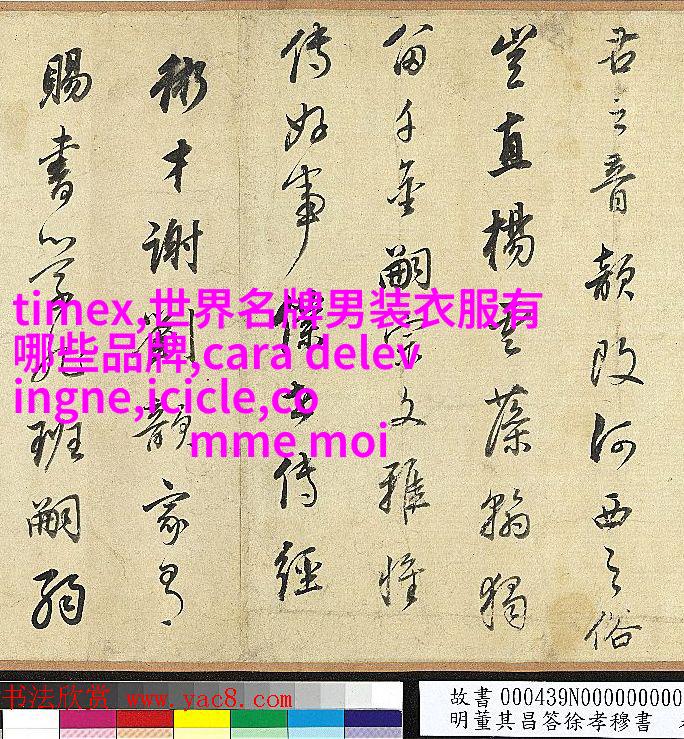 君之音韻改河西之俗
豈直楊雲藻翰獨
留千金嗣宗文雅惟
傳好事僕世傳經
術才謝劉歆家有
賜書學非班嗣弱
timex,世界名牌男装衣服有
哪些品牌,cara delev
ingne,icicle,co
mme moi
书法欣赏 www.yac8.com
故書 000439N000000000
明董其昌答徐孝穆書